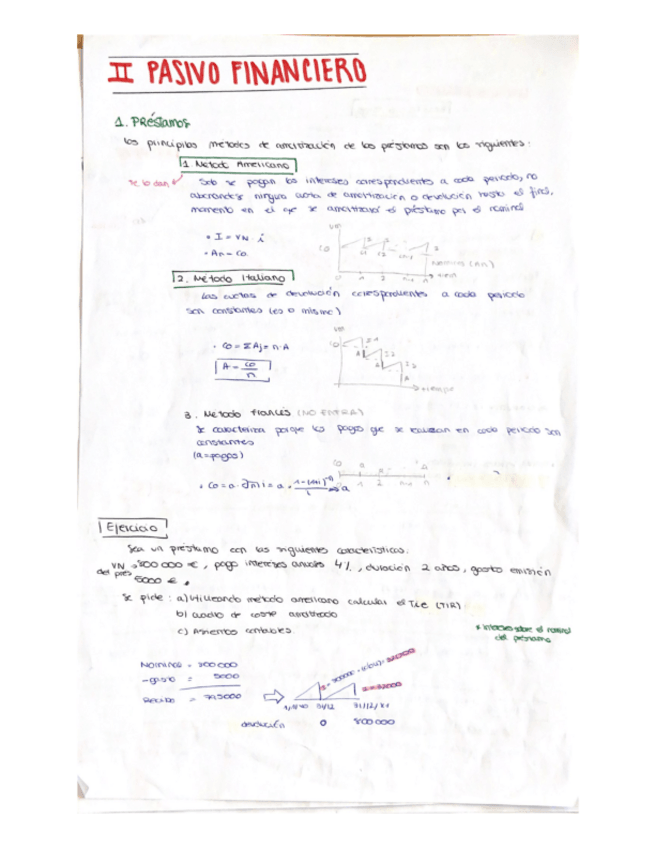 II PASIVO FINANCIERO
1. Préstamos
Los principales metodos de amortización de los préstamos son los siguientes:
1. Metodo Americano
Se lo dan
Solo se pagan los intereses correspondientes a cada periodo, no
abonandose ninguna cuota de amortizacion o devolución hasta el final,
momento en el que se amortizará el préstamo por el nominal
• I = VN · i
• An = Co
Co
Nominal (An)
0 1 2 n
2. Metodo Italiano
Las cuotas de devolución correspondientes a cada periodo
son constantes (es o mismo)
• Co = Σ Aj = n · A
A = Co/n
tiempo
3. Metodo Francés (NO ENTRA)
Se caracteriza porque los pagos que se realizan en cada periodo son
constantes
(a = pagos)
Ejercicio
Sea un préstamo con las siguientes características:
VN = 800 000 €, pago intereses anuales 4%, duración 2 años, gasto emisión
del pres
5000 €.
Se pide: a) Utilizando metodo americano calcular el T.I.E (TIR)
b) cuadro de coste amortizado
c) Asientos contables.
* intereses sobre el nominal
del préstamo
Nominal = 800 000
- gasto = 5000
Recibo = 795000
31/12
devolución 0 800 000